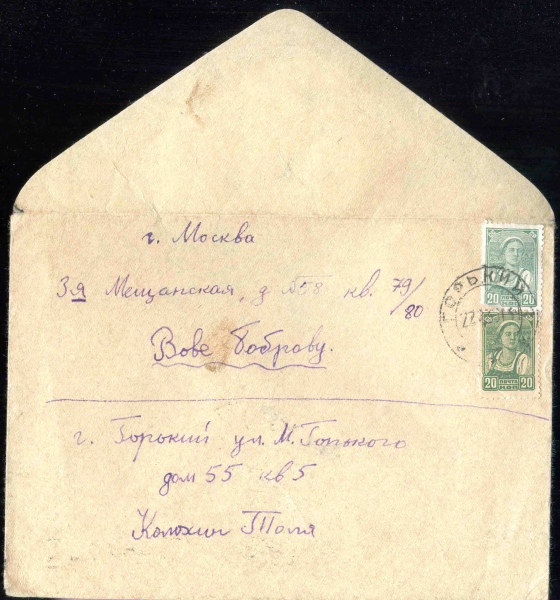 г. Москва
3-я Мещанская, д №58 кв. 79/80
Вове Боброву.
г. Горький ул. М. Горького
дом 55 кв 5
Колохин Толя
ГОРЬКИЙ
20 20
20 ПОЧТА СССР 20